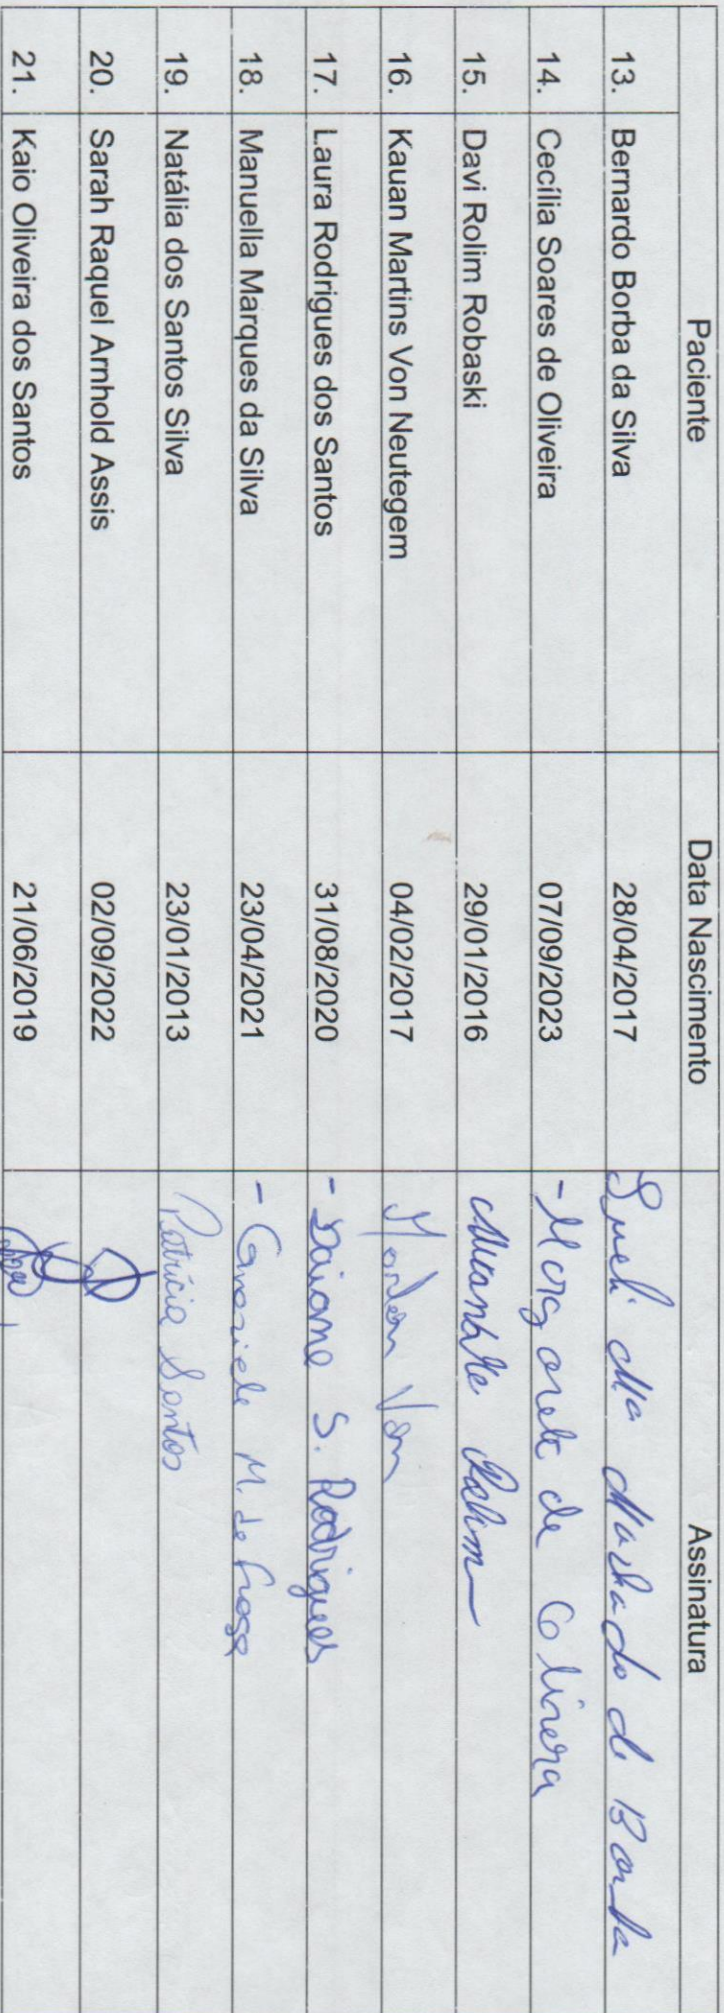 Paciente Data Nascimento Assinatura
13. Bernardo Borba da Silva 28/04/2017 Sueli Ma Machado de Borba
14. Cecília Soares de Oliveira 07/09/2023 - Margarete de Oliveira
15. Davi Rolim Robaski 29/01/2016
16. Kauan Martins Von Neutegem 04/02/2017 Von
17. Laura Rodrigues dos Santos 31/08/2020 - Daiane S. Rodrigues
18. Manuella Marques da Silva 23/04/2021 - Graziele M. de
19. Natália dos Santos Silva 23/01/2013 Patrícia Santos
20. Sarah Raquel Arnhold Assis 02/09/2022
21. Kaio Oliveira dos Santos 21/06/2019